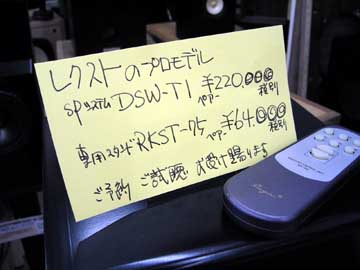 レクストのプロモデル
SPシステム DSW-T1 ペアー ¥220.000 税別
専用スタンド RKST-75 ペアー ¥64.000 税別
ご予約 ご試聴 お受け賜ります